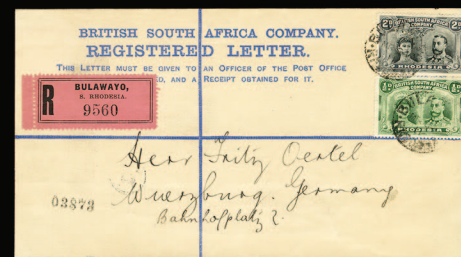 BRITISH SOUTH AFRICA COMPANY.
REGISTERED LETTER.
THIS LETTER MUST BE GIVEN TO AN OFFICER OF THE POST OFFICE
ED, AND A RECEIPT OBTAINED FOR IT.
R
BULAWAYO,
S. RHODESIA.
9560
BRITISH SOUTH AFRICA
COMPANY
RHODESIA
BRITISH SOUTH AFRICA
COMPANY
RHODESIA
Herr Fritz Oertel
Wuerzburg. Germany
Bahnhofplatz 2.
03873